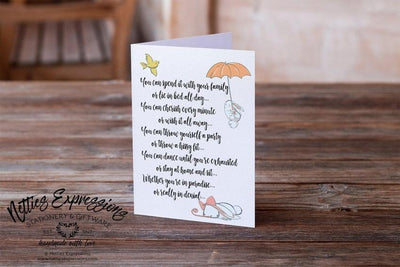 You can spend it with your family
or lie in bed all day...
You can cherish every minute
or wish it all away...
You can throw yourself a party
or throw a hissy fit...
You can dance until you're exhausted
or stay at home and sit...
Whether you're in paradise...
or really in denial...
Netties Expressions
STATIONERY & GIFTWARE
handmade with love
© Netties Expressions
www.nettiesexpressions.com